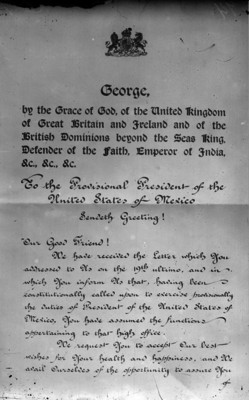 George,
by the Grace of God, of the United Kingdom
of Great Britain and Ireland and of the
British Dominions beyond the Seas King,
Defender of the Faith, Emperor of India,
&c., &c., &c.
To the Provisional President of the
United States of Mexico
Sendeth Greeting!
Our Good Friend!
We have received the Letter which You
addressed to Us on the 19th ultimo, and in
which You inform Us that, having been
constitutionally called upon to exercise provisionally
the duties of President of the United States of
Mexico, You have assumed the functions
appertaining to that high office.
We request You to accept Our best
wishes for Your health and happiness, and We
avail Ourselves of the opportunity to assure You
of